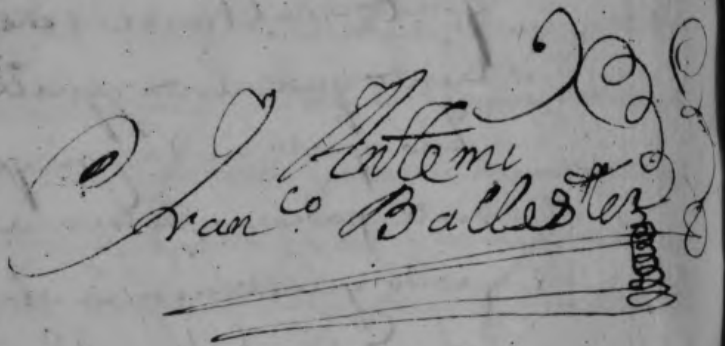 Antemi
Fran.co Ballester